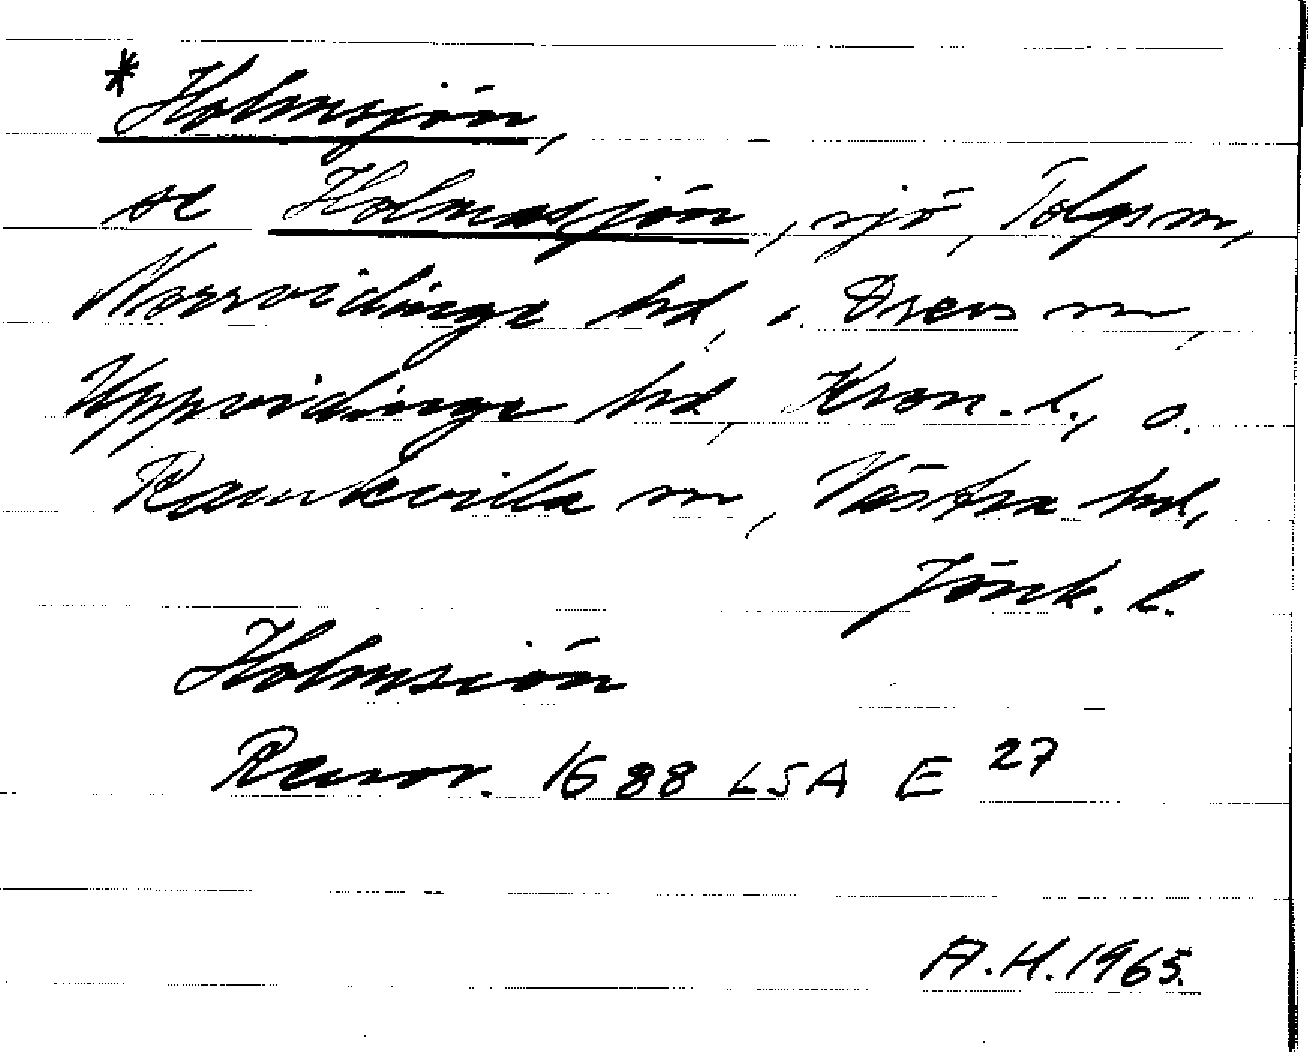 *Holmsjön,
se Holmasjön, sjö, Tolgs sn,
Norrvidinge hd, o. Drevs sn,
Uppvidinge hd, Kron. l., o.
Ramkvilla sn, Västra hd,
Jönk. l.
Holmsiön
Ranr. 1688 LSA E 27
A.H. 1965.